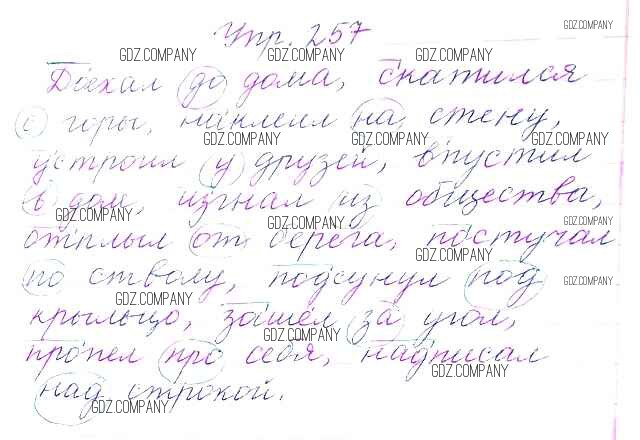 Упр. 257
GDZ.COMPANY
GDZ.COMPANY GDZ.COMPANY GDZ.COMPANY
Доехал до дома, скатился
с горы, наклеил на стену,
GDZ.COMPANY GDZ.COMPANY GDZ.COMPANY
устроил у друзей, впустил
в дом, изгнал из общества,
GDZ.COMPANY GDZ.COMPANY GDZ.COMPANY
отплыл от берега, постучал
GDZ.COMPANY
по стволу, подсунул под
GDZ.COMPANY GDZ.COMPANY
крыльцо, зашёл за угол,
GDZ.COMPANY
пропел про себя, надписал
GDZ.COMPANY
над строкой.
GDZ.COMPANY